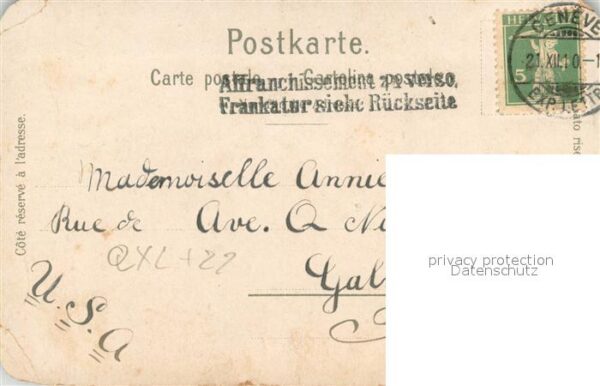 Postkarte.
Carte postale. — Cartolina postale.
Affranchissement au verso.
Frankatur siehe Rückseite
HE
5
GENÈVE
21.XII.10.-1
EXP. LETTR
Côté réservé à l'adresse.
ato rise
Mademoiselle Annie
Rue de Ave. Q
Gal
U.S.A
QXL+22
privacy protection
Datenschutz